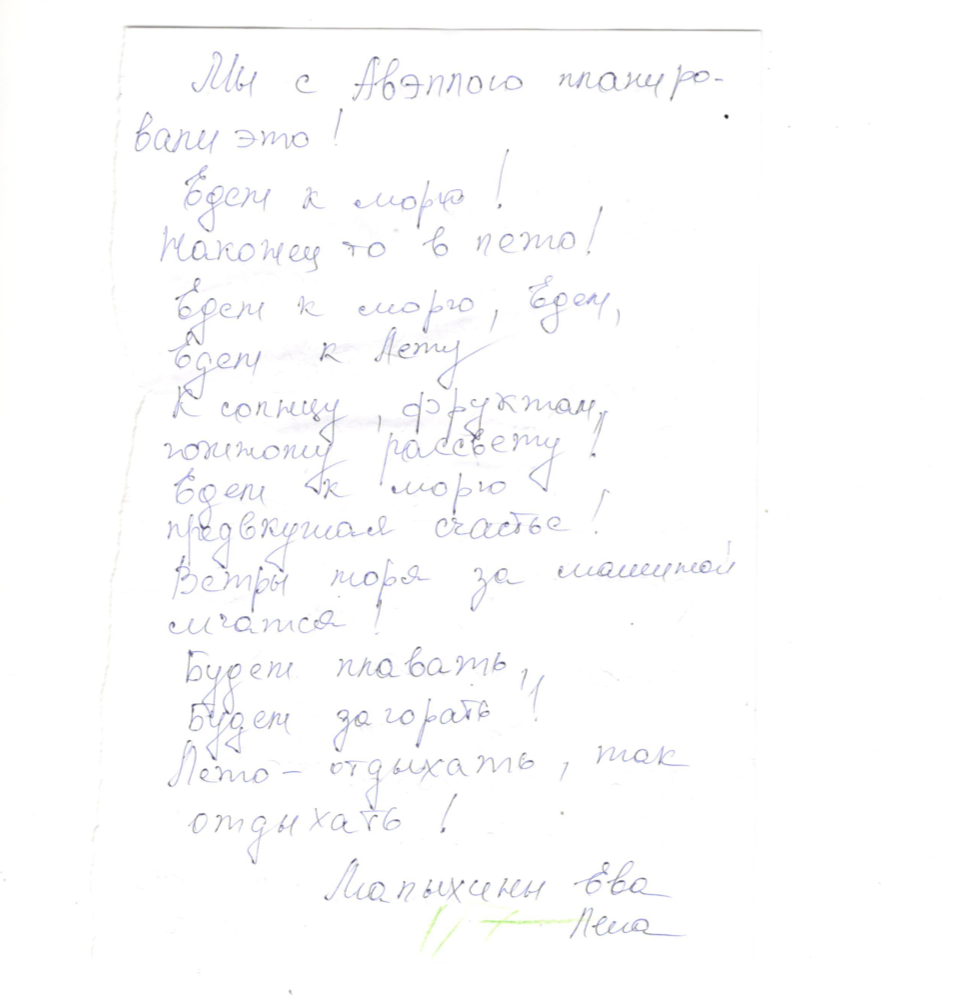 Мы с Авэллою планиро-
вали это!
Едем к морю!
Наконец то в лето!
Едем к морю, Едем,
Едем к Лету
К солнцу, фруктам,
южному рассвету!
Едем к морю
предвкушая счастье!
Ветры моря за машиной
мчатся!
Будем плавать,
Будем загорать!
Лето – отдыхать, так
отдыхать!
Малыхины Ева
Лена